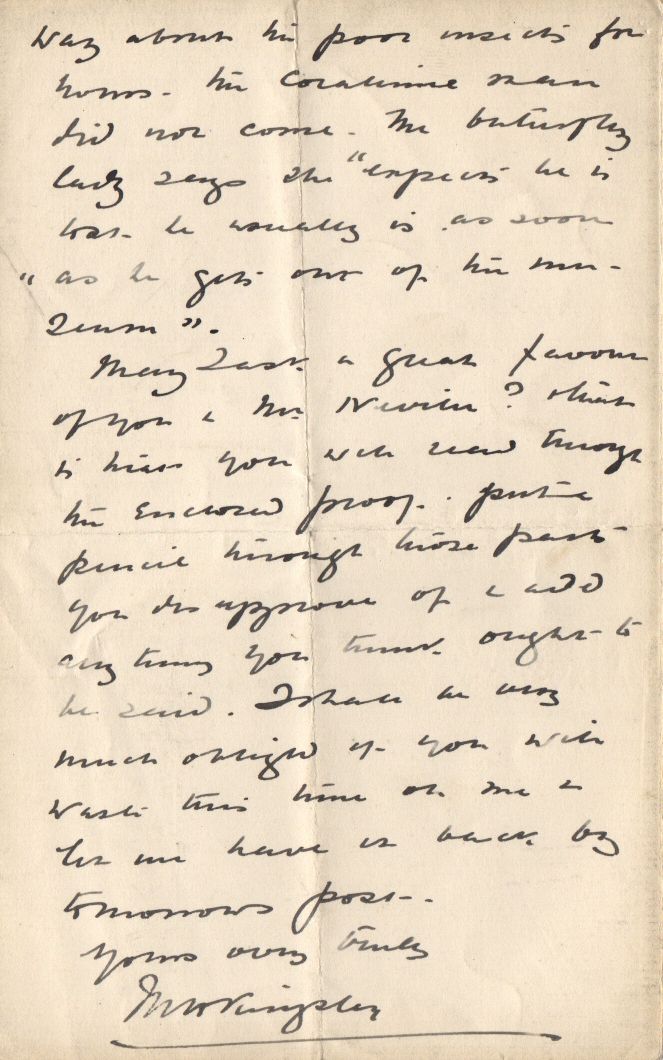 way about the poor insects for
hours. the Coraline man
did not come. The butterfly
lady says she "expects he is
lost. he usually is as soon
" as he gets out of the mu-
seum".
May I ask a great favour
of you & Mr. Nevile? that
is that you will read through
the enclosed proof. put a
pencil through those parts
you disapprove of & add
any thing you think ought to
be said. I shall be very
much obliged if you will
waste this time on me &
let me have it back by
tomorrows post.
Yours very truly
M H Kingsley